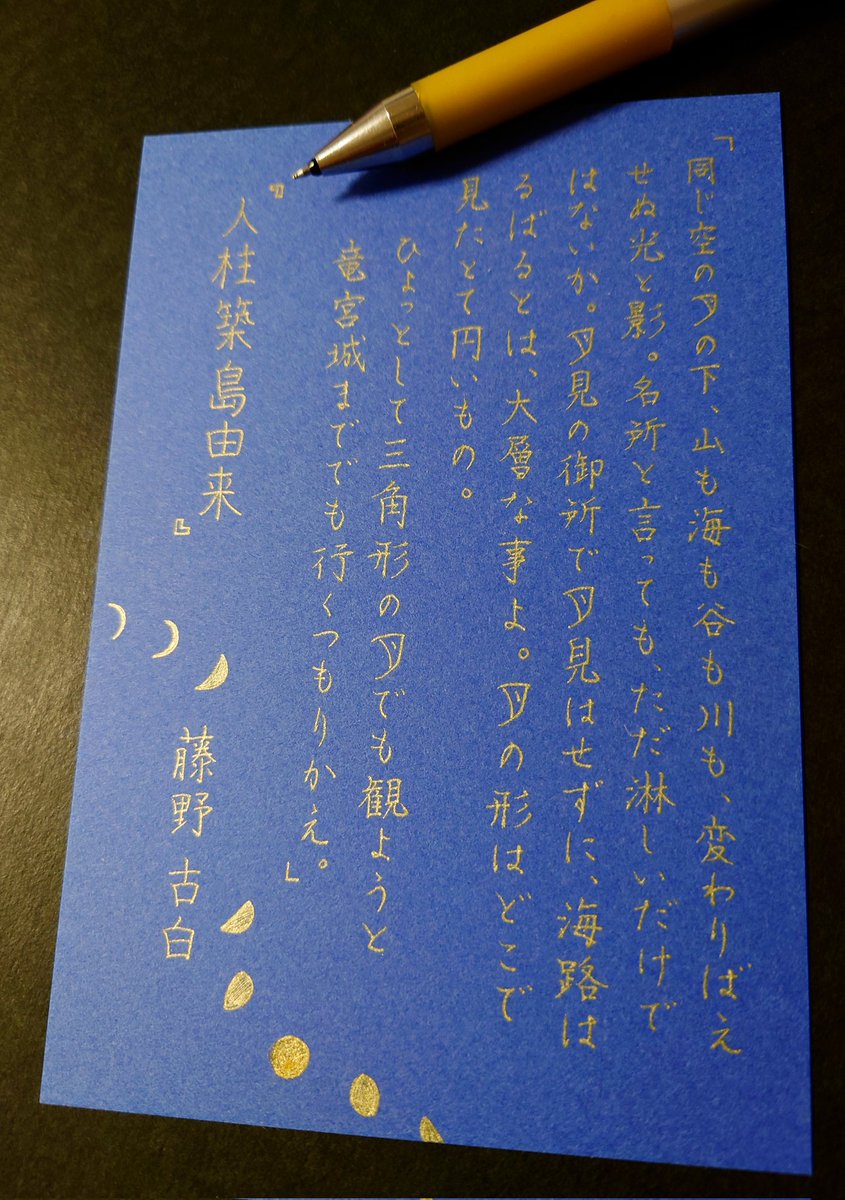 「同じ空の月の下、山も海も谷も川も、変わりばえ
せぬ光と影。名所と言っても、ただ淋しいだけで
はないか。月見の御所で月見はせずに、海路は
るばるとは、大層な事よ。月の形はどこで
見たとて円いもの。
ひょっとして三角形の月でも観ようと
竜宮城まででも行くつもりかえ。」
『人柱築島由来』
藤野古白